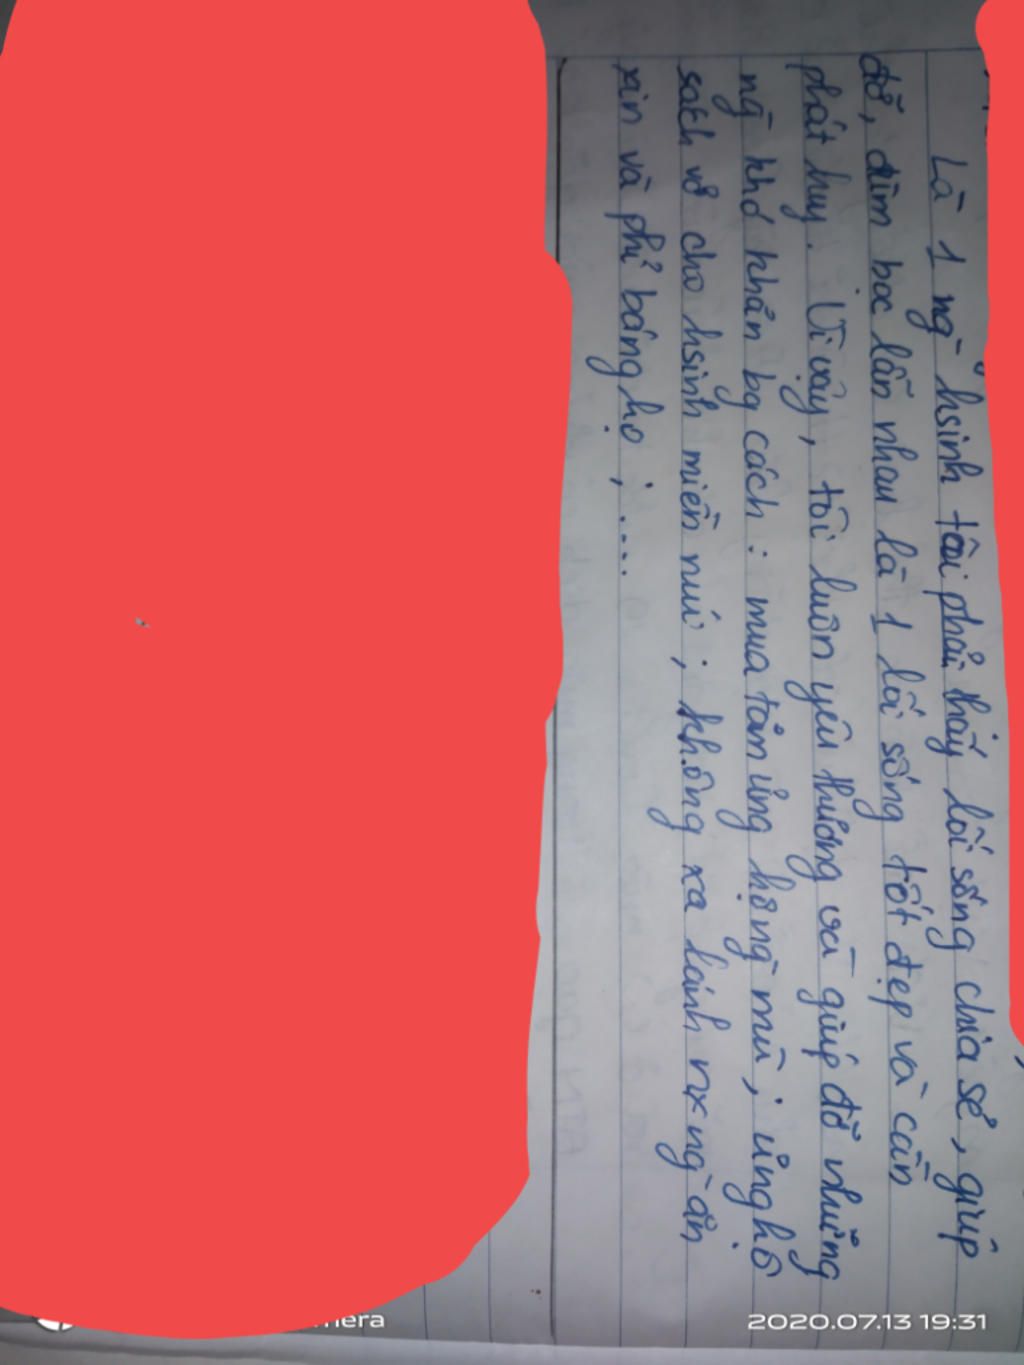 Là 1 ng̀ hsinh tôi phải thấy lối sống chia sẻ, giúp
đỡ, đùm bọc lẫn nhau là 1 lối sống tốt đẹp và cần
phát huy. Vì vậy, tôi luôn yêu thương và giúp đỡ những
ng̀ khó khăn bg cách: mua tăm ủng hộ ng̀ mù; ủng hộ
sách vở cho hsinh miền núi; không xa lánh nx ng̀ ăn
xin và phỉ báng họ; ....
mera
2020.07.13 19:31